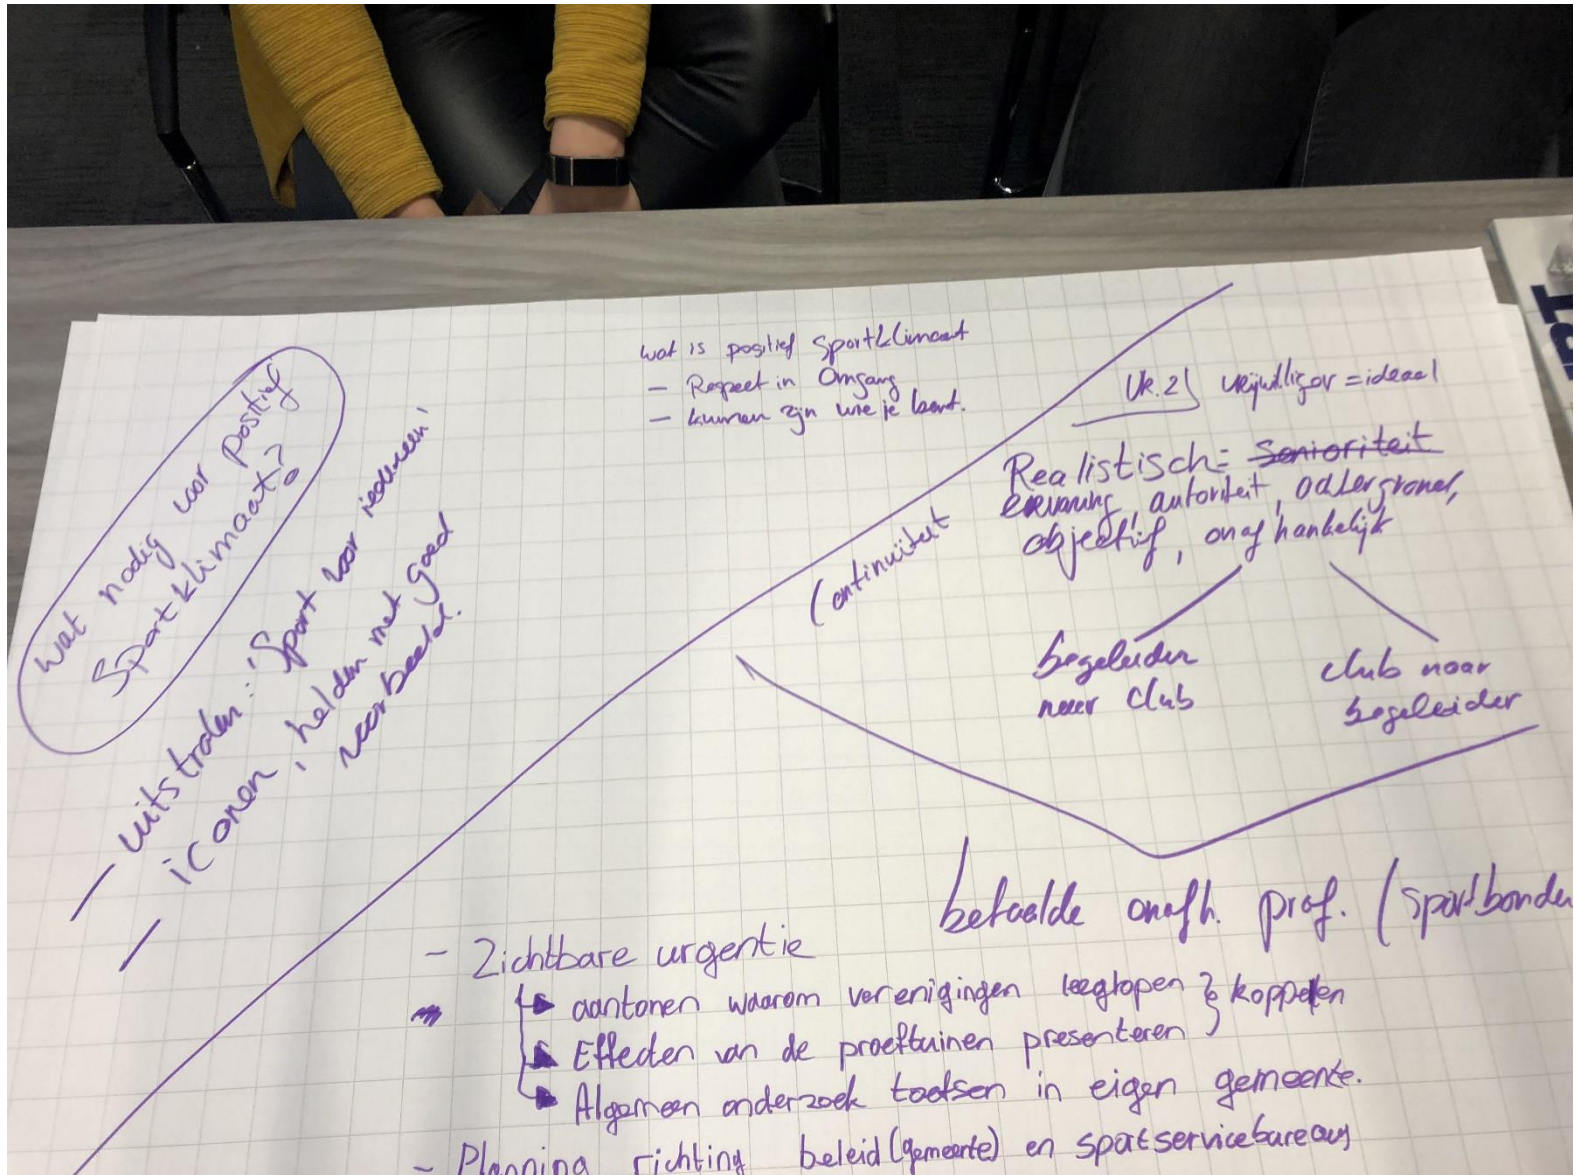 wat nodig voor postief
Sportklimaat?
- uitstralen: 'Sport voor iedereen'
- iconen, helden met goed
voorbeeld.
wat is positief Sportklimaat
- Respect in Omgang
- kunnen zijn wie je bent.
Vr. 2) vrijwilliger = ideaal
Realistisch = Senioriteit
ervaring, autoriteit, achtergrond,
objectief, onafhankelijk
Continuïteit
begeleider
naar Club
club naar
begeleider
betaalde onafh. prof. (Sportbonde
- Zichtbare urgentie
aantonen waarom verenigingen leeglopen } koppelen
Effecten van de proeftuinen presenteren
Algemeen onderzoek toetsen in eigen gemeente.
- Planning richting beleid (gemeente) en sportservicebureaus